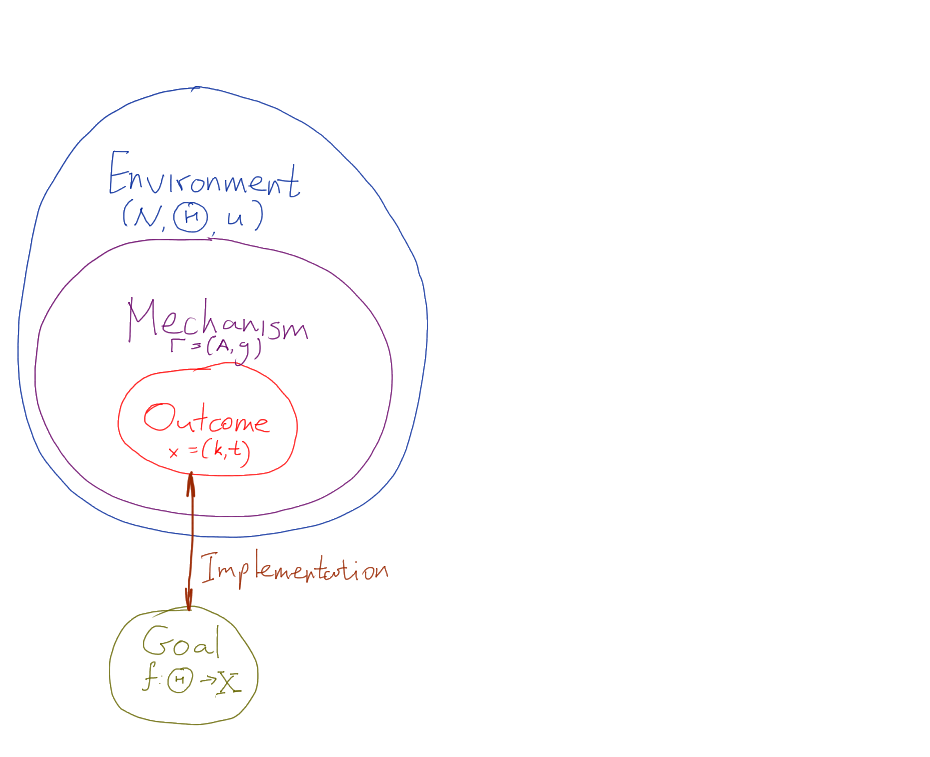 Environment
(N, Θ, u)
Mechanism
Γ=(A,g)
Outcome
x=(k,t)
Implementation
Goal
f:Θ→X